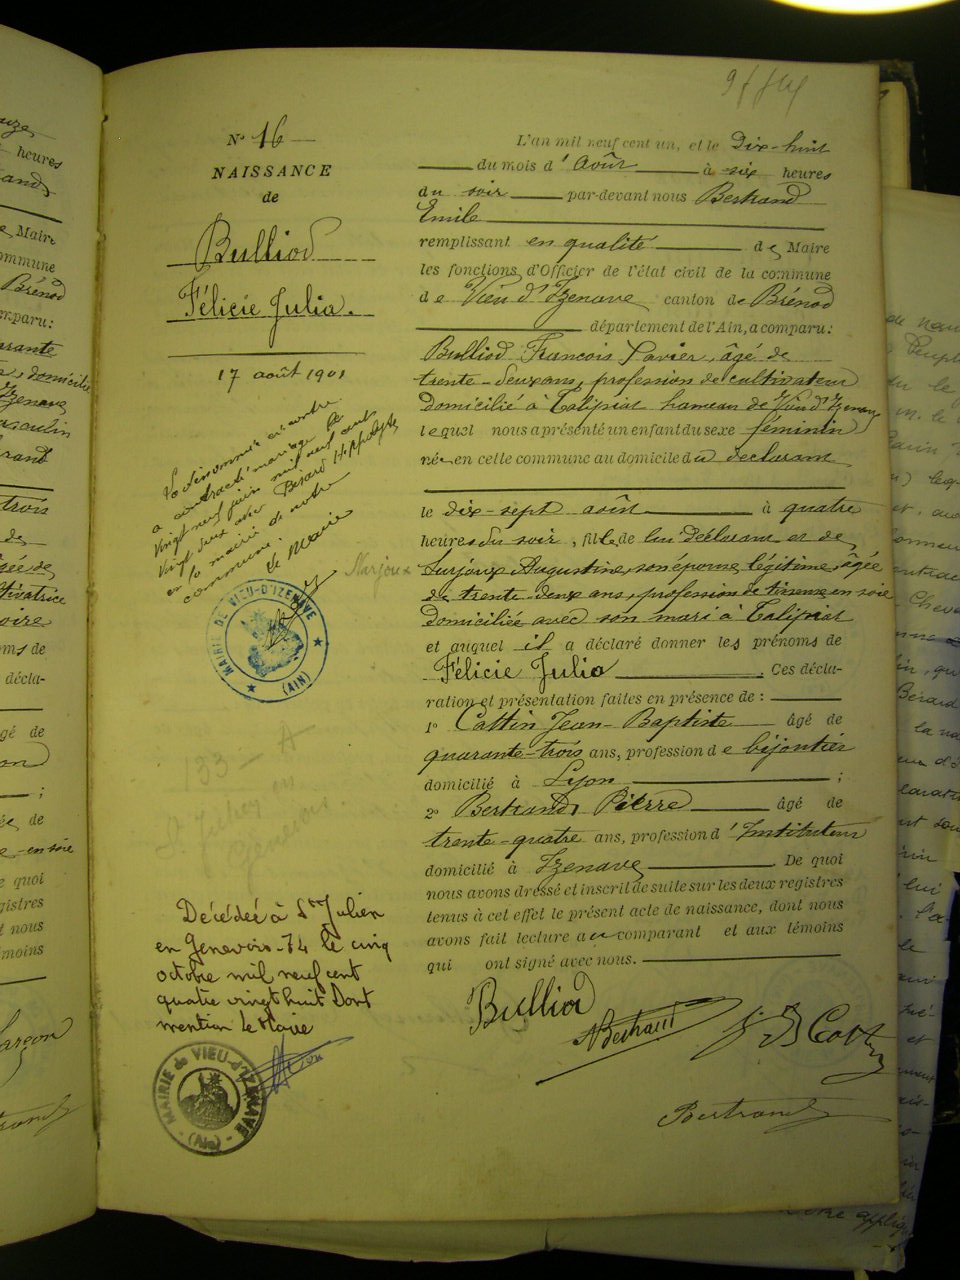 N° 16
NAISSANCE
de
Bulliod
Félicie Julia.
17 août 1901
La dénommée ci-contre
a contracté mariage le
vingt neuf juin mil neuf cent
vingt deux avec Bérard Hippolyte
en la mairie de notre
commune.
Le Maire
MAIRIE DE VIEU-D'IZENAVE
(AIN)
133 - A
St Julien en
Genevois.
Décédée à St Julien
en Genevois-74 le cinq
octobre mil neuf cent
quatre vingt huit Dont
mention le Maire
MAIRIE de VIEU-d'IZENAVE
(Ain)
L'an mil neuf cent un, et le Dix-huit
du mois d'Août à six heures
du soir par-devant nous Bertrand
Emile
remplissant en qualité de Maire
les fonctions d'Officier de l'état civil de la commune
de Vieu d'Izenave canton de Brénod
département de l'Ain, a comparu:
Bulliod François Xavier, âgé de
trente-deux ans, profession de cultivateur
domicilié à Talipiat hameau de Vieu d'Izenave
lequel nous a présenté un enfant du sexe féminin
née en cette commune au domicile du déclarant
le dix-sept août à quatre
heures du soir, fille de lui Déclarant et de
Marjoux
Surjoux Augustine, son épouse légitime, âgée
de trente-deux ans, profession de tisseuse en soie
domiciliée avec son mari à Talipiat
et auquel il a déclaré donner les prénoms de
Félicie Julia Ces décla-
ration et présentation faites en présence de :
1° Cattin Jean-Baptiste âgé de
quarante-trois ans, profession de bijoutier
domicilié à Lyon ;
2° Bertrand Pierre âgé de
trente-quatre ans, profession d'Instituteur
domicilié à Izenave De quoi
nous avons dressé et inscrit de suite sur les deux registres
tenus à cet effet le présent acte de naissance, dont nous
avons fait lecture au comparant et aux témoins
qui ont signé avec nous.
Bulliod
Bertrand
J. B Cattin
Bertrand